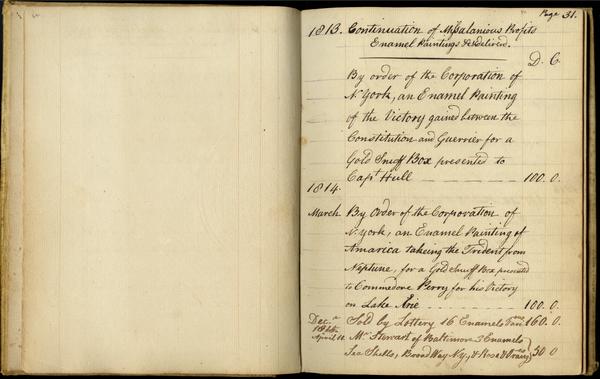 Page 31.
1813. Continuation of Missalanious Profits
Enamel Paintings &c delivered.
D. C.
By order of the Corporation of
N. York, an Enamel Painting
of the Victory gained between the
Constitution and Guerrier for a
Gold Snuff Box presented to
Capt. Hull 100. 0.
1814.
March By Order of the Corporation of
N. York, an Enamel Painting of
Amarica takeing the Trident from
Neptune, for a Gold Snuff Box presented
to Commodore Perry for his Victory
on Lake Arie 100. 0.
Sold by Lottery 16 Enamels 160. 0.
April Mr Stewart of Baltimore 3 Enamels
Sea Shells, Broad Way Ny, & Rose & 50 0